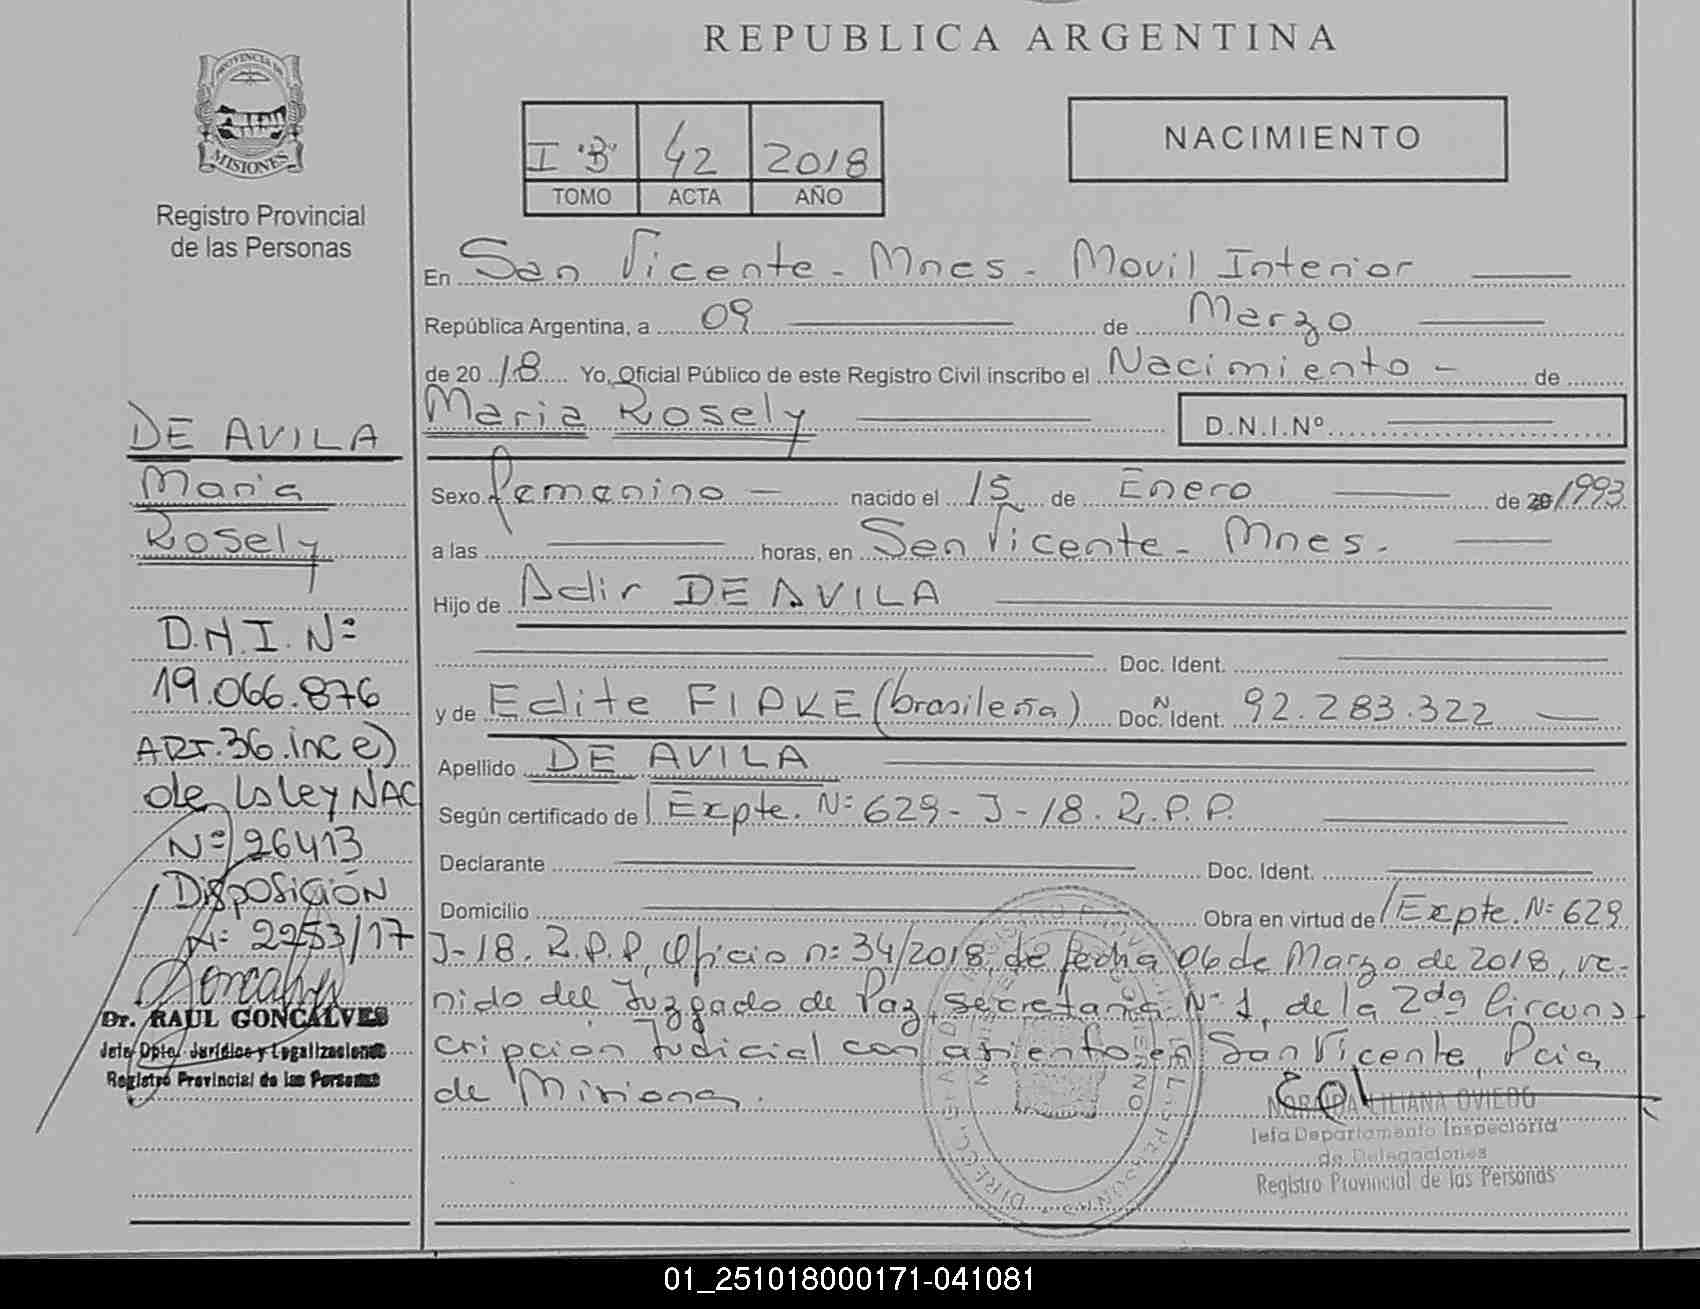 REPUBLICA ARGENTINA
PROVINCIA DE
MISIONES
Registro Provincial
de las Personas
I "B" 42 2018
TOMO ACTA AÑO
NACIMIENTO
En San Vicente - Mnes - Movil Interior
República Argentina, a 09 de Marzo
de 20 18 Yo, Oficial Público de este Registro Civil inscribo el Nacimiento - de
Maria Rosely D.N.I.Nº
Sexo femenino - nacido el 15 de Enero de 20 1993
a las horas, en San Vicente - Mnes.
Hijo de Adir DE AVILA
Doc. Ident.
y de Edite FIDKE (brasileña) Doc. Ident. Nº 92.283.322
Apellido DE AVILA
Según certificado de Expte. Nº 629 - J - 18. R.P.P.
Declarante Doc. Ident.
Domicilio Obra en virtud de Expte. Nº 629
J-18. R.P.P, Oficio nº 34/2018, de fecha 06 de Marzo de 2018, ve-
nido del Juzgado de Paz, Secretaria Nº 1, de la 2da Circuns
cripción Judicial con asiento en San Vicente, Pcia
de Misiones.
LILIANA OVIEDO
Jefa Departamento Inspectoría
de Delegaciones
Registro Provincial de las Personas
DE AVILA
Maria
Rosely
D.N.I. Nº
19.066.876
ART. 36. inc e)
de la ley NAC
Nº 26413
Disposición
Nº 2253/17
Dr. RAUL GONCALVES
Jefe Dpto. Jurídico y Legalizaciones
Registro Provincial de las Personas
01_251018000171-041081